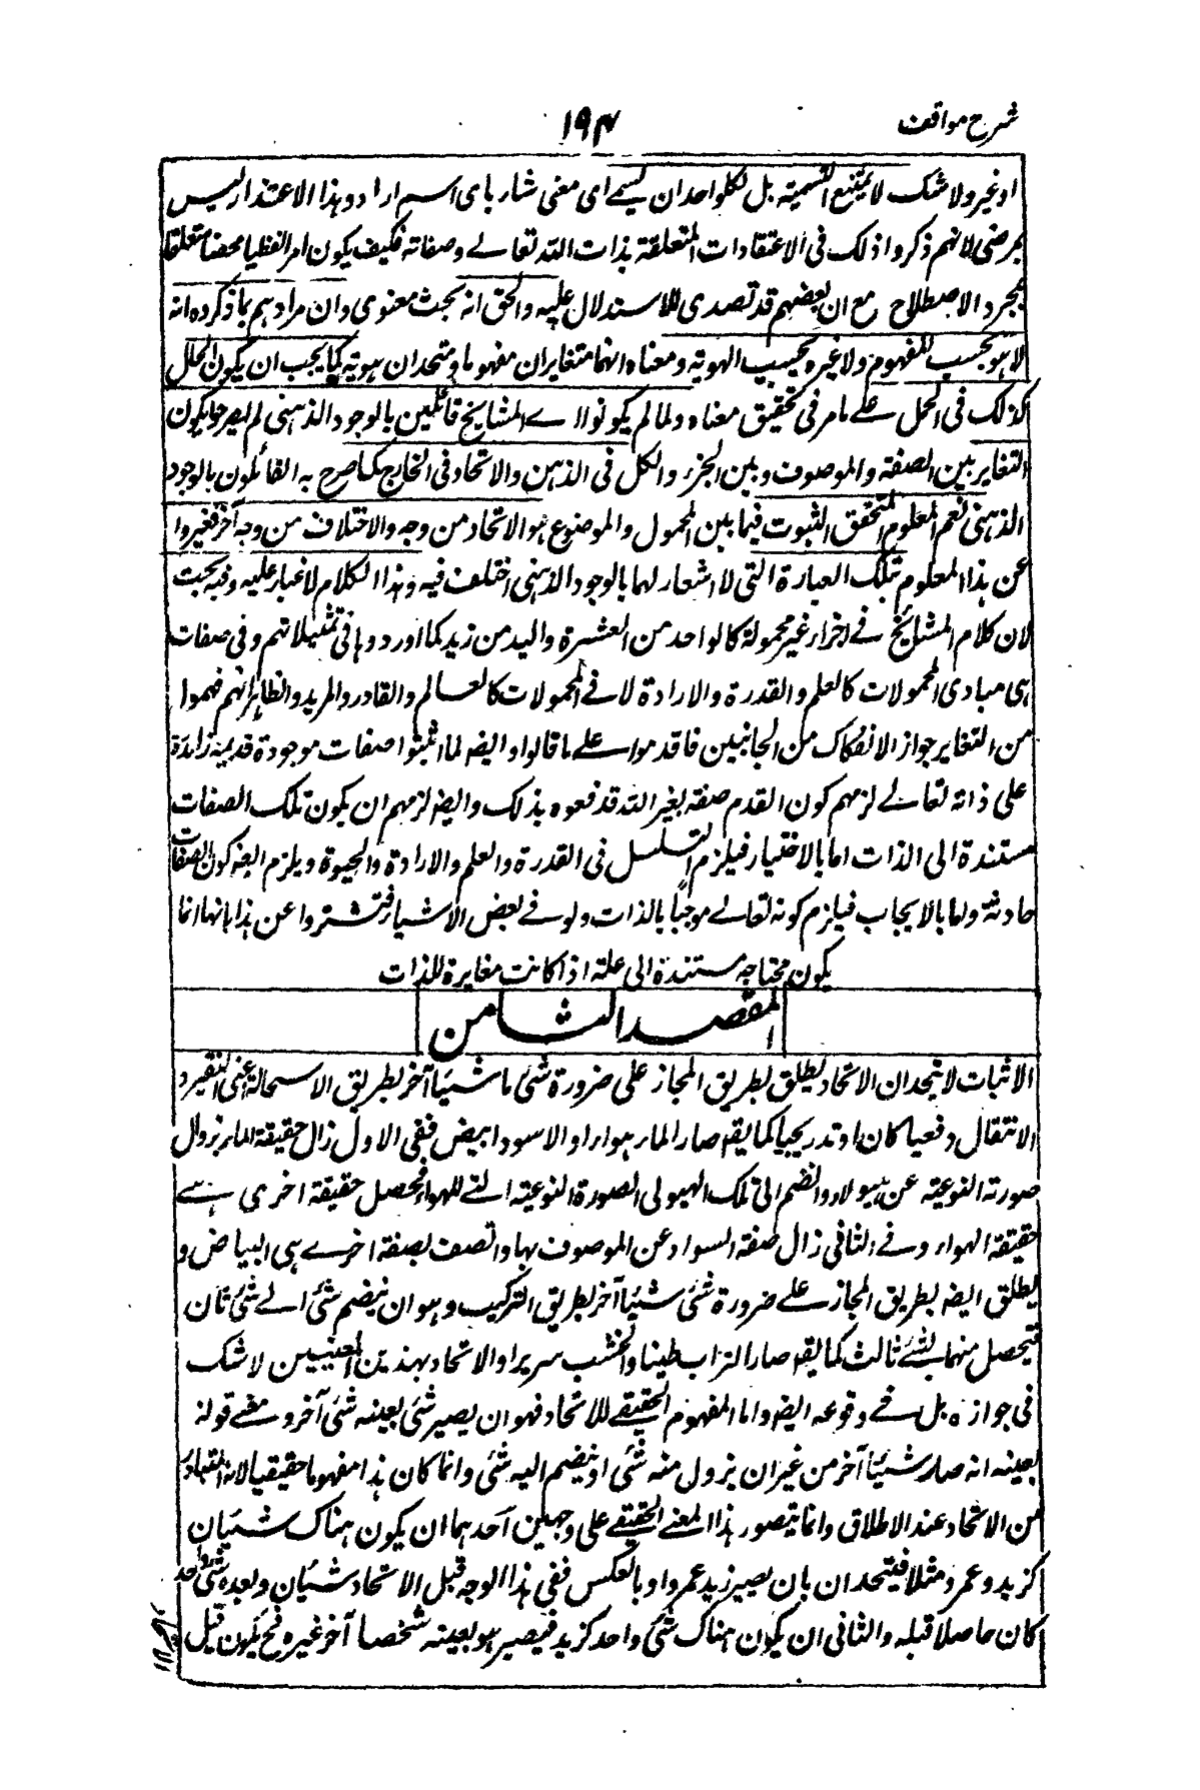 شرح مواقف
۱۹۴
او غير ولا شك لا يمتنع التسمية بل لكل واحد ان يسمى اى معنى شاء باى اسم اراد وهذا الاعتذار ليس
بمرضى لانهم ذكروا ذلك فى الاعتقادات المتعلقة بذات الله تعالى وصفاته فكيف يكون امرا لفظيا محضا متعلقا
بمجرد الاصطلاح مع ان بعضهم قد تصدى للاستدلال عليه والحق انه بحث معنوى وان مرادهم بما ذكروه انه
لا هو بحسب المفهوم ولا غيره بحسب الهوية ومعناه انهما متغايران مفهوما ومتحدان هوية كما يجب ان يكون الحال
كذلك فى الحمل على ما مر فى تحقيق معناه ولما لم يكونوا اى المشايخ قائلين بالوجود الذهنى لم يصرحوا بكون
التغاير بين الصفة والموصوف وبين الجزء والكل فى الذهن والاتحاد فى الخارج كما صرح به القائلون بالوجود
الذهنى نعم المعلوم المتحقق الثبوت فيما بين المحمول والموضوع هو الاتحاد من وجه والاختلاف من وجه آخر فعبروا
عن هذا المعلوم بتلك العبارة التى لا اشعار لها بالوجود الذهنى اختلف فيه وهذا الكلام لا غبار عليه وفيه بحث
لان كلام المشايخ فى اجزاء غير محمولة كالواحد من العشرة واليد من زيد كما اوردوها فى تمثيلاتهم وفى صفات
هى مبادى المحمولات كالعلم والقدرة والارادة لا فى المحمولات كالعالم والقادر والمريد والظاهر انهم فهموا
من التغاير جواز الانفكاك من الجانبين فاقدموا على ما قالوا وايضه لما اثبتوا صفات موجودة قديمة زائدة
على ذاته تعالى لزمهم كون القدم صفة لغير الله فدفعوه بذلك وايضه لزمهم ان يكون تلك الصفات
مستندة الى الذات اما بالاختيار فيلزم التسلسل فى القدرة والعلم والارادة والحيوة ويلزم ايضه كون الصفات
حادثة واما بالايجاب فيلزم كونه تعالى موجبا بالذات ولو فى بعض الاشياء فتستروا عن هذا بانها انما
يكون محتاجه مستندة الى علة اذا كانت مغايرة للذات
المقصد الثامن
الاثنان لا يتحدان الاتحاد يطلق بطريق المجاز على ضرورة شئ ما شيئا آخر بطريق الاستحالة اعنى التغير و
الانتقال دفعيا كان او تدريجيا كما يقه صار الماء هواء او الاسود ابيض ففى الاول زال حقيقة الماء بزوال
صورته النوعية عن هيولاه وانضم الى تلك الهيولى الصورة النوعية التى للهواء فحصل حقيقة اخرى هى
حقيقة الهواء وفى الثانى زال صفة السواد عن الموصوف بها واتصف بصفة اخرى هى البياض و
يطلق ايضه بطريق المجاز على ضرورة شئ شيئا آخر بطريق التركيب وهو ان ينضم شئ الى شئ ثان
فيحصل منهما شئ ثالث كما يقه صار التراب طينا والخشب سريرا والاتحاد بهذين المعنيين لا شك
فى جوازه بل فى وقوعه ايضه واما المفهوم الحقيقى للاتحاد فهو ان يصير شئ بعينه شئ آخر ومعنى قولنا
بعينه انه صار شيئا آخر من غير ان يزول منه شئ او ينضم اليه شئ وانما كان هذا مفهوما حقيقيا لانه المتبادر
من الاتحاد عند الاطلاق وانما يتصور هذا المعنى الحقيقى على وجهين آحدهما ان يكون هناك شيئان
كزيد وعمرو مثلا فيتحدان بان يصير زيد عمروا وبالعكس ففى هذا الوجه قبل الاتحاد شيئان وبعده شئ واحد
كان حاصلا قبله والثانى ان يكون هناك شئ واحد كزيد فيصير هو بعينه شخصا آخر غيره فح يكون قبل